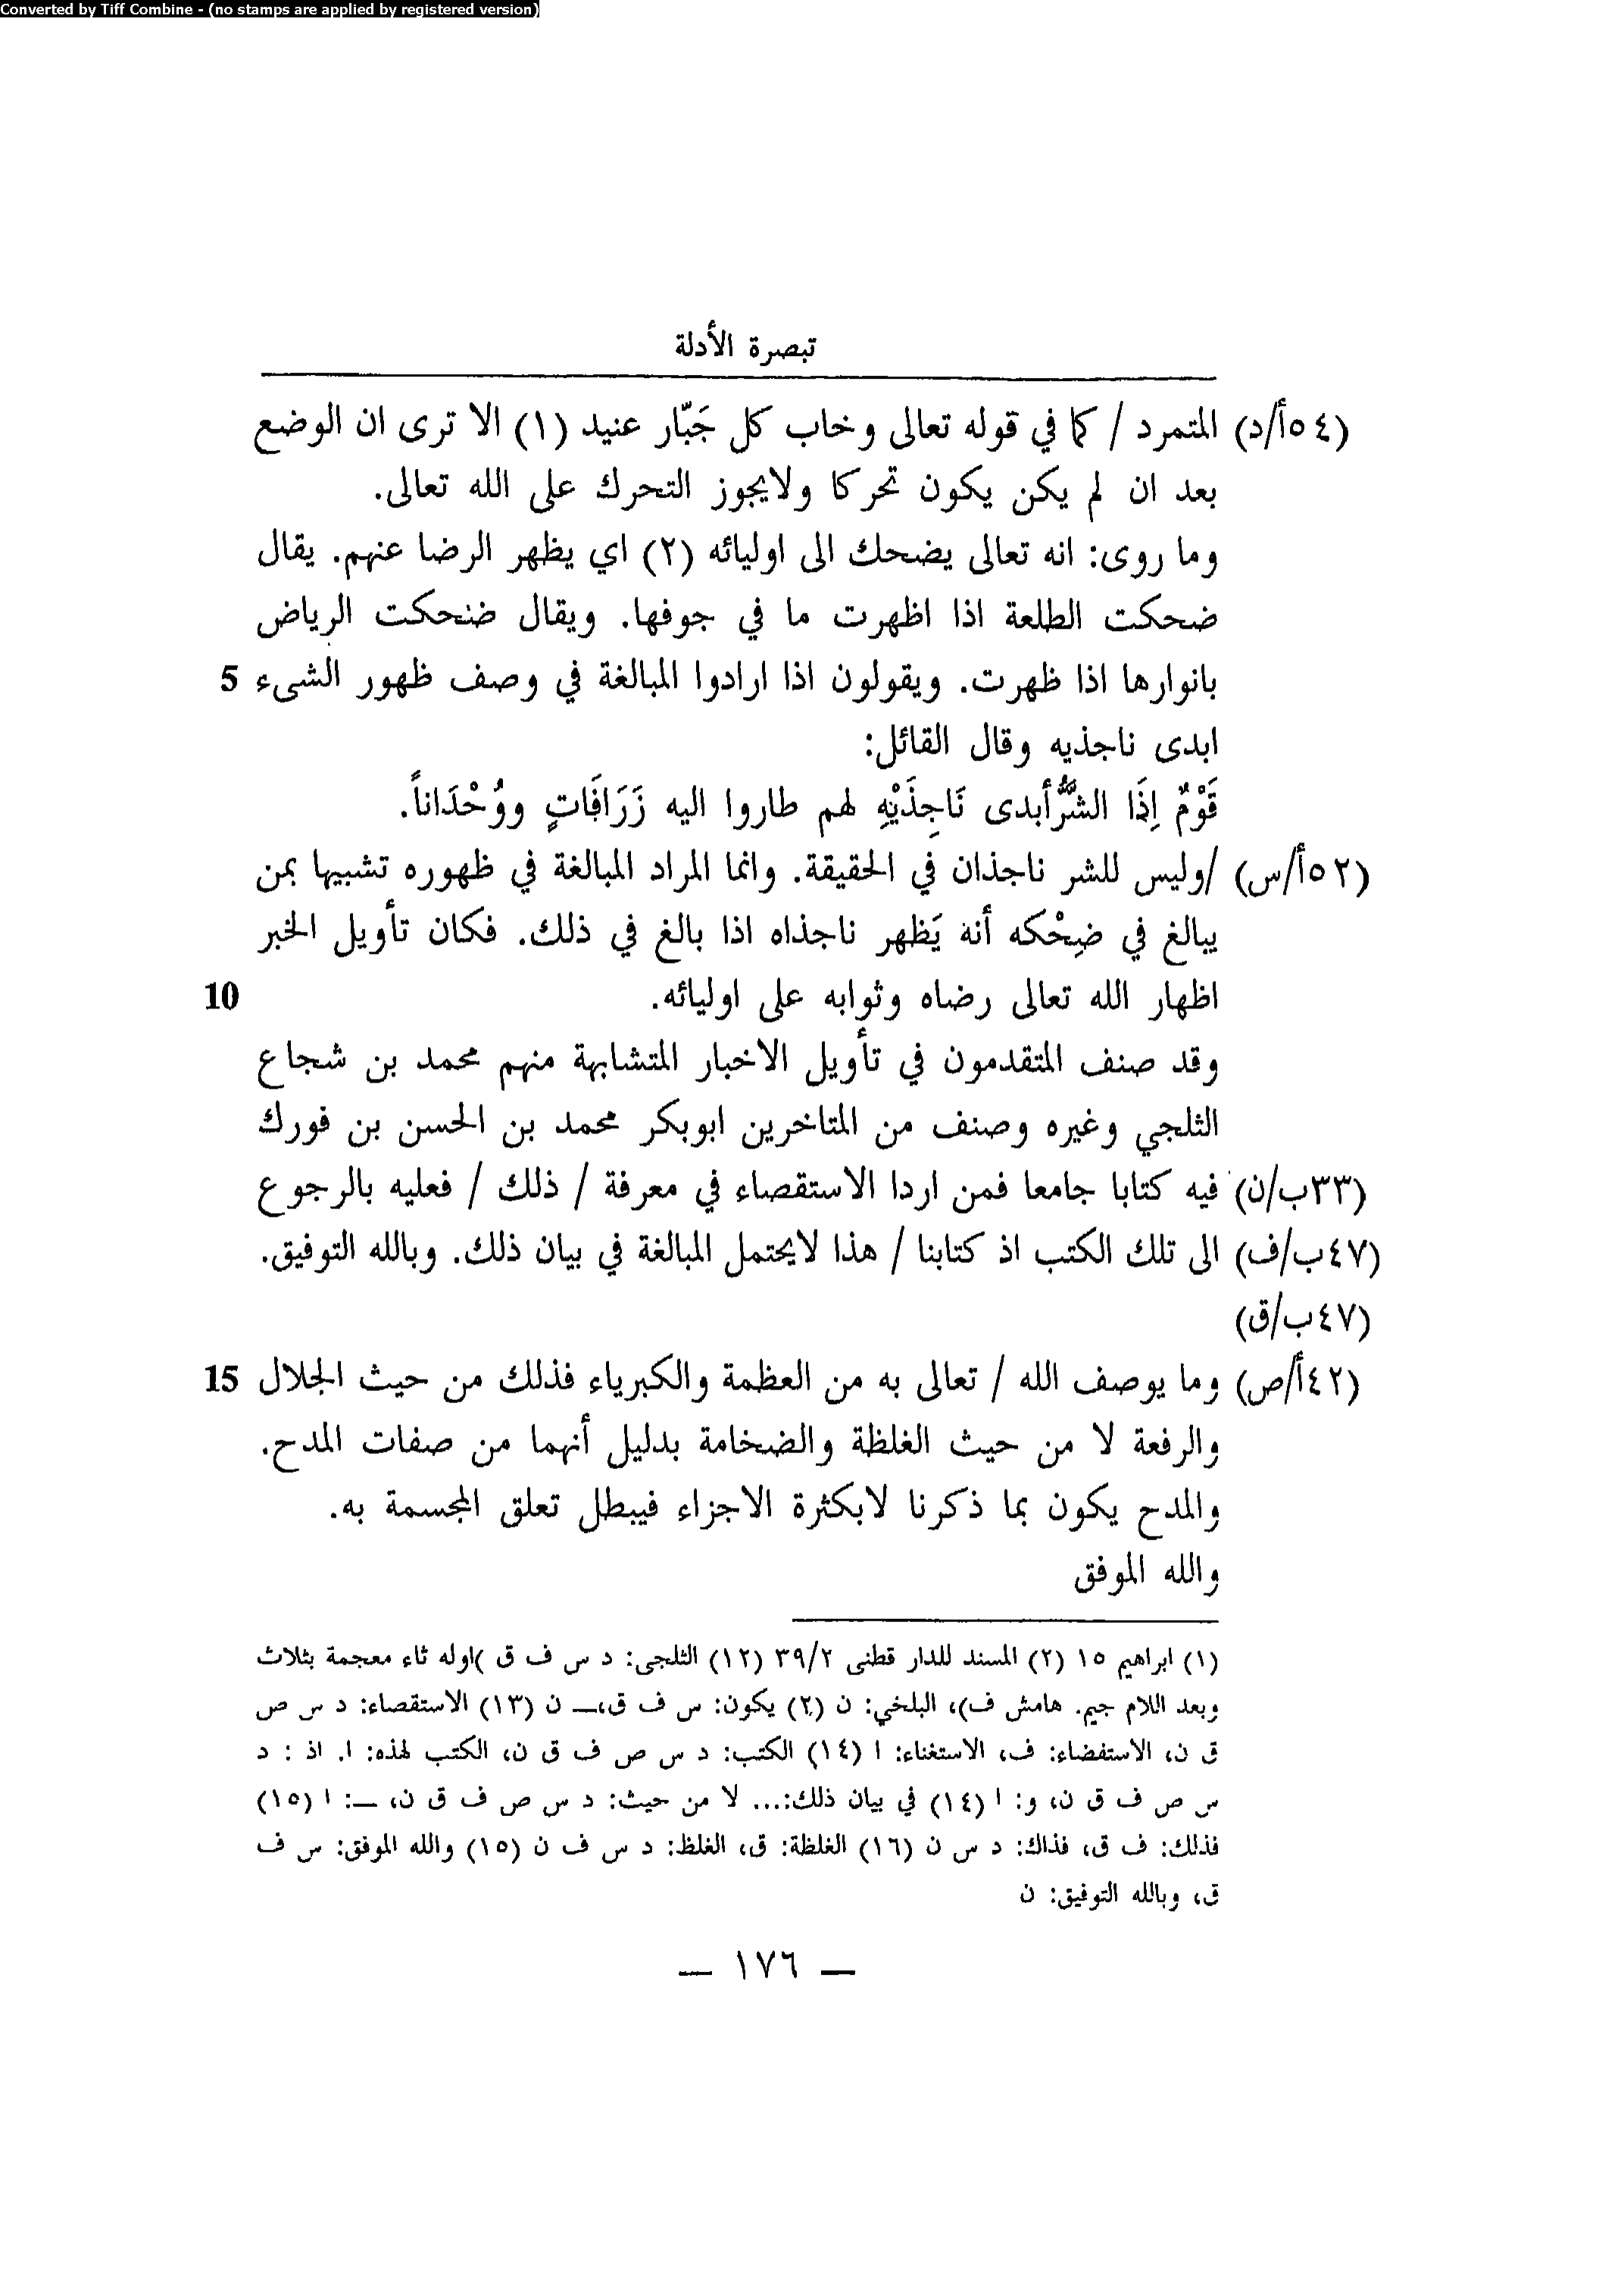 Converted by Tiff Combine - (no stamps are applied by registered version)
تبصرة الأدلة
(٥٤أ/د) المتمرد / كما في قوله تعالى وخاب كل جَبّار عنيد (١) الا ترى ان الوضع
بعد ان لم يكن يكون تحركا ولايجوز التحرك على الله تعالى.
وما روى: انه تعالى يضحك الى اوليائه (٢) اي يظهر الرضا عنهم. يقال
ضحكت الطلعة اذا اظهرت ما في جوفها. ويقال ضحكت الرياض
بانوارها اذا ظهرت. ويقولون اذا ارادوا المبالغة في وصف ظهور الشىء 5
ابدى ناجذيه وقال القائل:
قَوْمٌ اِذَا الشَّرُّأبدى نَاجِذَيْهِ لهم طاروا اليه زَرَافَاتٍ ووُحْدَاناً.
(٥٢أ/س) /وليس للشر ناجذان في الحقيقة. وانما المراد المبالغة في ظهوره تشبيها بمن
يبالغ في ضِحْكه أنه يَظهر ناجذاه اذا بالغ في ذلك. فكان تأويل الخبر
اظهار الله تعالى رضاه وثوابه على اوليائه. 10
وقد صنف المتقدمون في تأويل الاخبار المتشابهة منهم محمد بن شجاع
الثلجي وغيره وصنف من المتاخرين ابوبكر محمد بن الحسن بن فورك
(٣٣ب/ن) فيه كتابا جامعا فمن اردا الاستقصاء في معرفة / ذلك / فعليه بالرجوع
(٤٧ب/ف) الى تلك الكتب اذ كتابنا / هذا لايحتمل المبالغة في بيان ذلك. وبالله التوفيق.
(٤٧ب/ق)
(٤٢أ/ص) وما يوصف الله / تعالى به من العظمة والكبرياء فذلك من حيث الجلال 15
والرفعة لا من حيث الغلظة والضخامة بدليل أنهما من صفات المدح.
والمدح يكون بما ذكرنا لابكثرة الاجزاء فيبطل تعلق المجسمة به.
والله الموفق
(١) ابراهيم ١٥ (٢) المسند للدار قطنى ٣٩/٢ (١٢) الثلجى: د س ف ق )اوله ثاء معجمة بثلاث
وبعد اللام جيم. هامش ف)، البلخي: ن (٢) يكون: س ف ق،ــ ن (١٣) الاستقصاء: د س ص
ق ن، الاستفضاء: ف، الاستغناء: ا (١٤) الكتب: د س ص ف ق ن، الكتب لهذه: ا. اذ : د
س ص ف ق ن، و: ا (١٤) في بيان ذلك:... لا من حيث: د س ص ف ق ن، ــ: ا (١٥)
فذلك: ف ق، فذاك: د س ن (١٦) الغلظة: ق، الغلظ: د س ف ن (١٥) والله الموفق: س ف
ق، وبالله التوفيق: ن
— ١٧٦ —